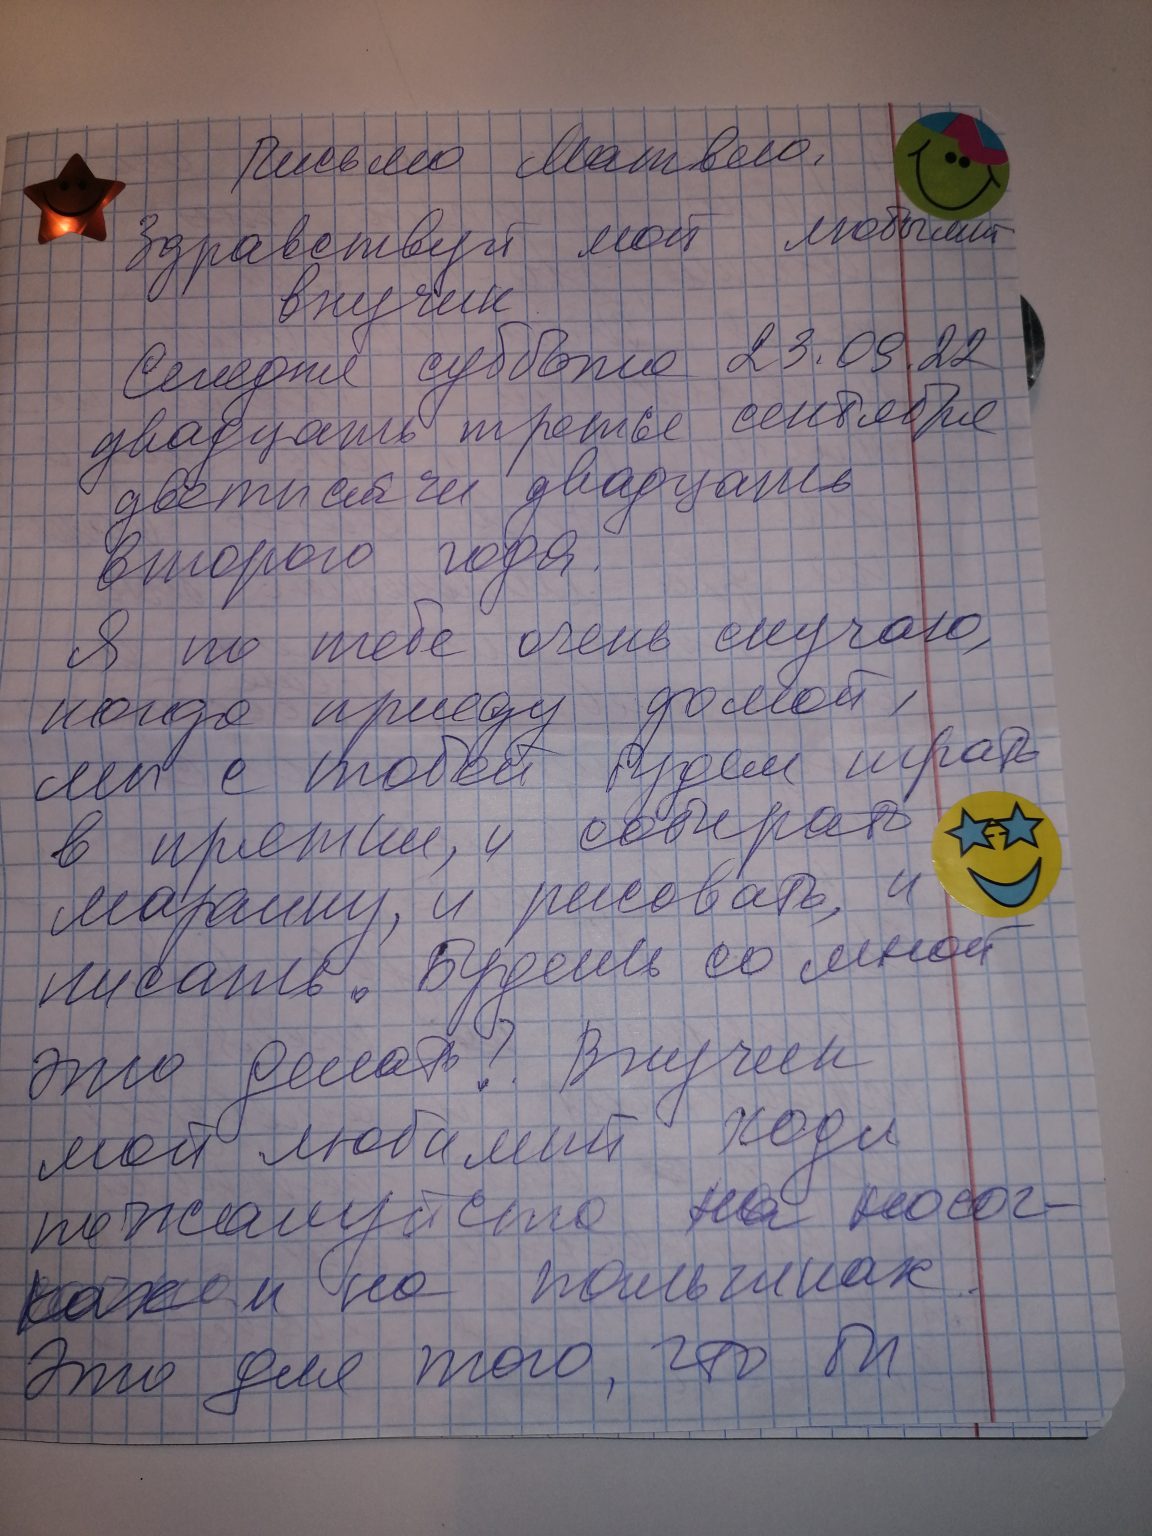 Письмо Матвею.
Здравствуй мой любымит
внучик
Сегодня суббота 23.09.22
двадцать третье сентября
дветысячи двадцать
второго года.
Я по тебе очень скучаю,
когда приеду домой,
мы с тобой будем играть
в прятки, и собирать
марашку, и рисовать, и
писать. Будешь со мной
это делать? Внучик
мой любимый ходи
пожалуйста на носоч-
ках и на пальчиках.
Это для того, что бы